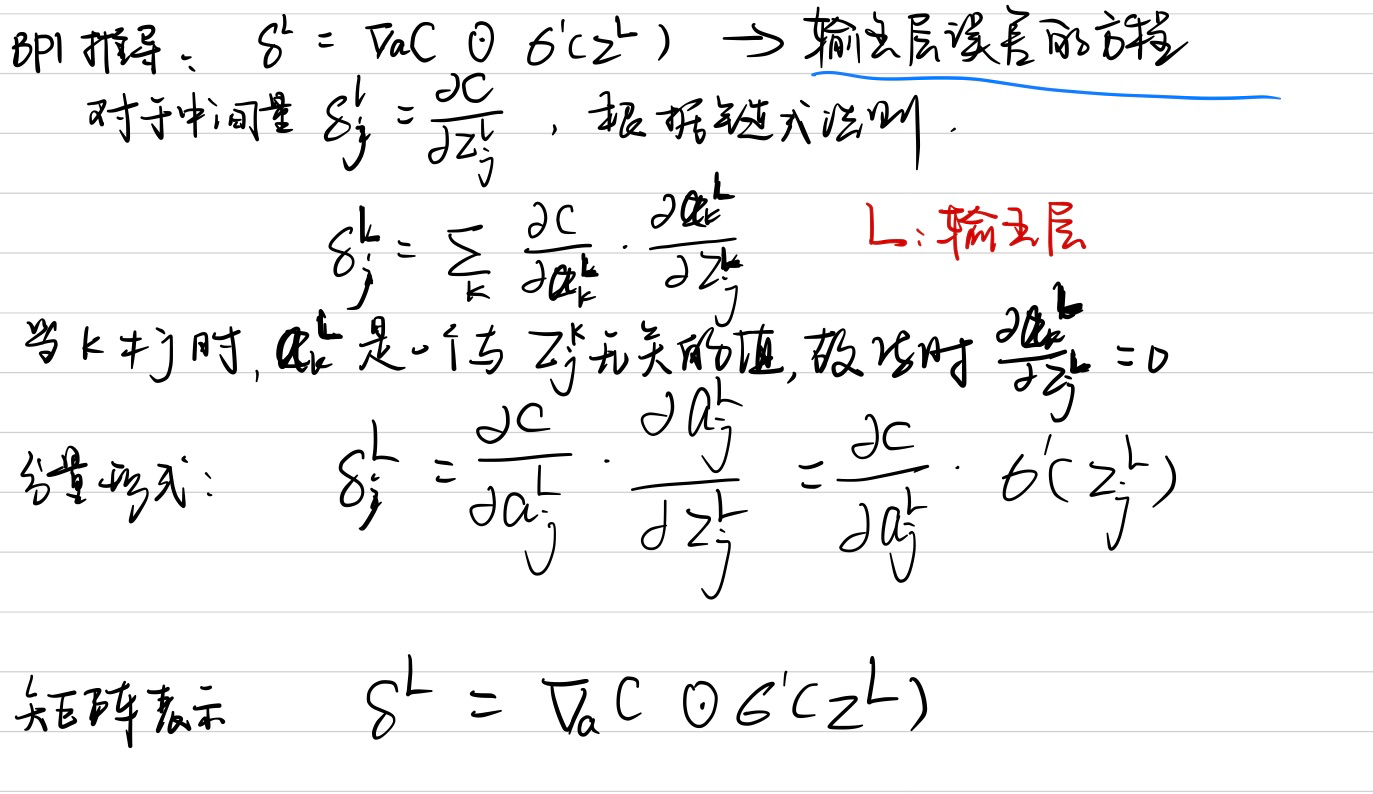 BP1 推导: δ^L = ∇aC ⊙ σ'(z^L) → 输出层误差的方程
对于中间量 δ_j^l = ∂C/∂z_j^l , 根据链式法则.
δ_j^L = Σ_k ∂C/∂a_k^L · ∂a_k^L/∂z_j^L L: 输出层
当 k ≠ j 时, a_k^L 是一个与 z_j^L 无关的值, 故此时 ∂a_k^L/∂z_j^L = 0
分量形式: δ_j^L = ∂C/∂a_j^L · ∂a_j^L/∂z_j^L = ∂C/∂a_j^L · σ'(z_j^L)
矩阵表示 δ^L = ∇_a C ⊙ σ'(z^L)